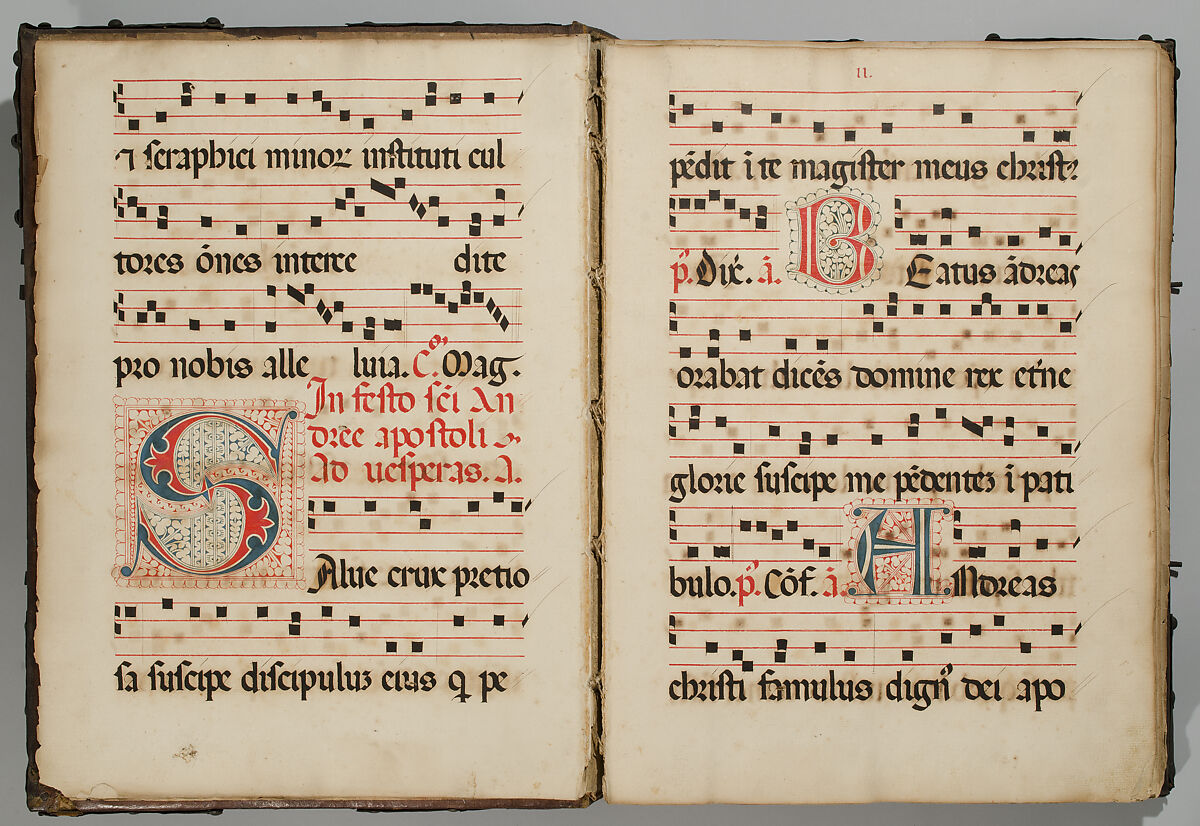 ⁊ seraphici minoꝛ instituti cul
tores ōnes interce dite
pro nobis alle luia. Cō. Mag.
In festo sc̄i An
dree apostoli
Ad uesperas. A.
SAlue crux pretio
sa suscipe discipulū eius q̄ pe
II.
pēdit ī te magister meus christꝰ
p̄. Dix̄. ā. BEatus ādreas
orabat dicēs domine rex et̄ne
glorie suscipe me pēdentē ī pati
bulo. p̄. Cōf. ā. ANdreas
christi famulus dignꝰ dei apo